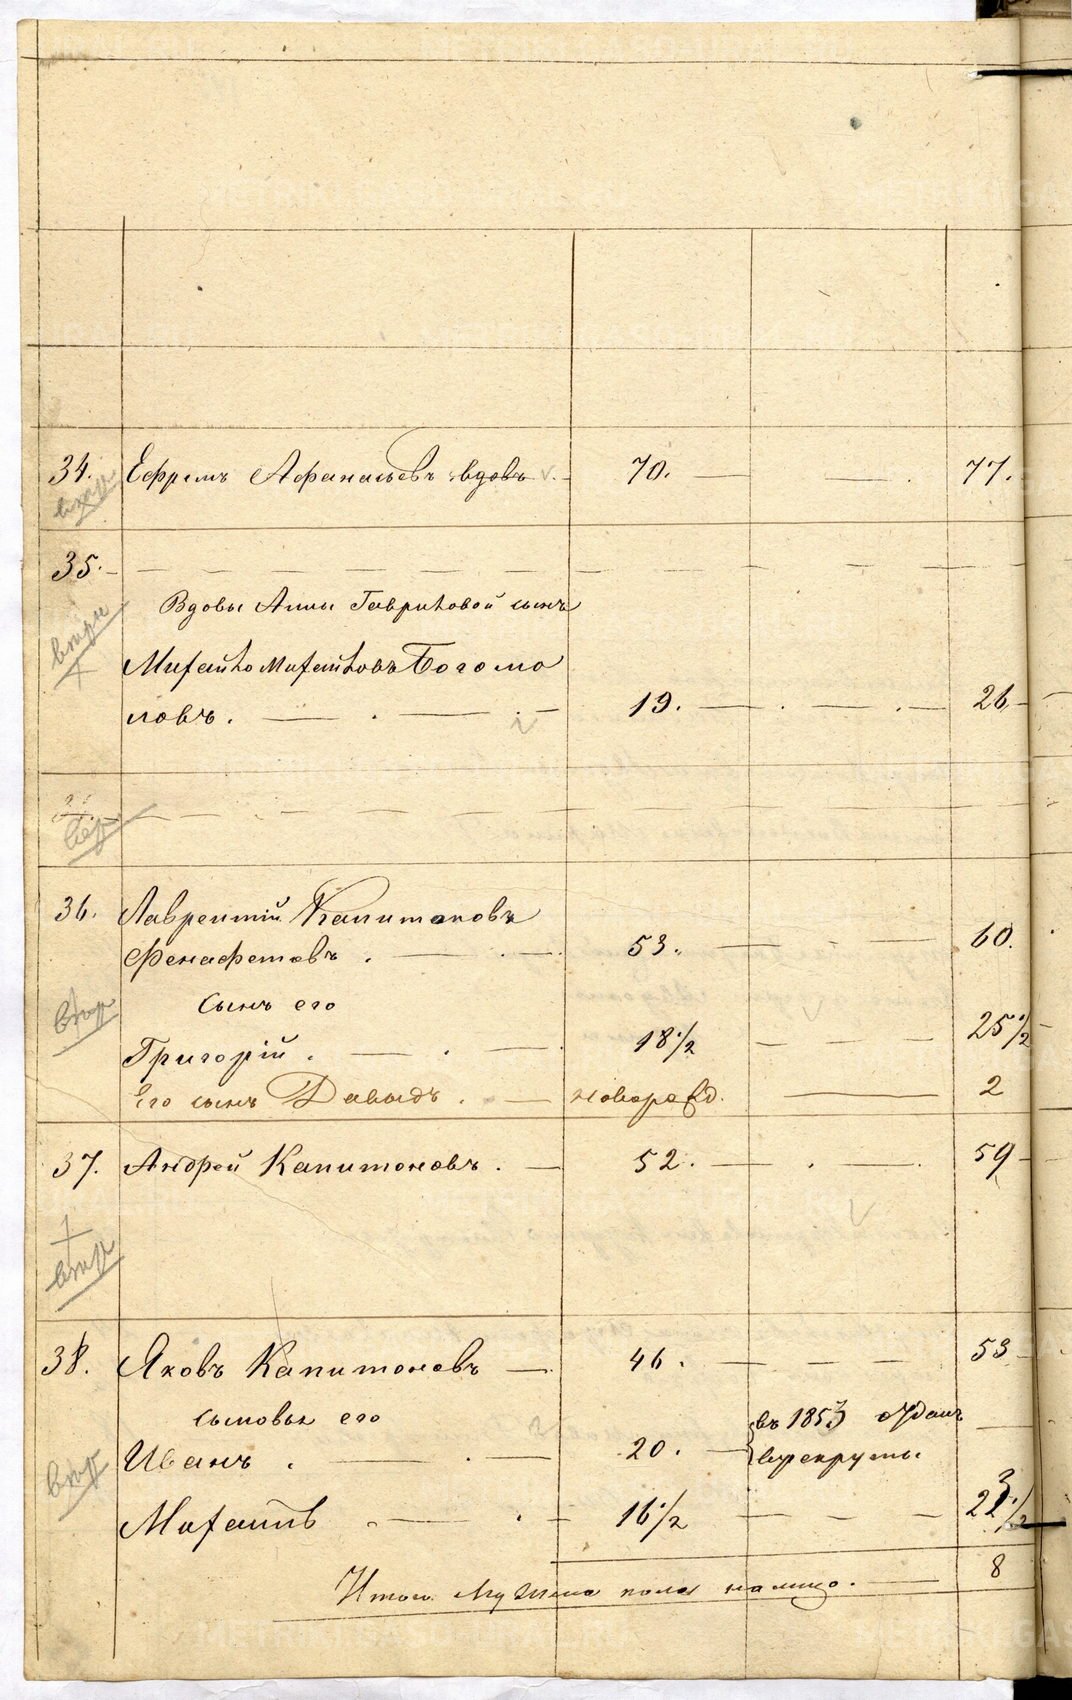 34. Ефремъ Афанасьевъ вдовъ 70. 77.
35.
Вдовы Анны Гавриловой сынъ
Михайло Михайловъ Богомо
ловъ. 19. 26
36. Лаврентій Капитоновъ
Фенафетовъ. 53. 60.
Сынъ его
Григорій. 18 1/2 25 1/2
Его сынъ Давыдъ. новорожд. 2
37. Андрей Капитоновъ. 52. 59
38. Яковъ Капитоновъ 46. 53
сыновья его
въ 1853 отданъ
Иванъ. 20. в рекруты.
Михаилъ 16 1/2 23 1/2
Итого мужска пола налицо. 8